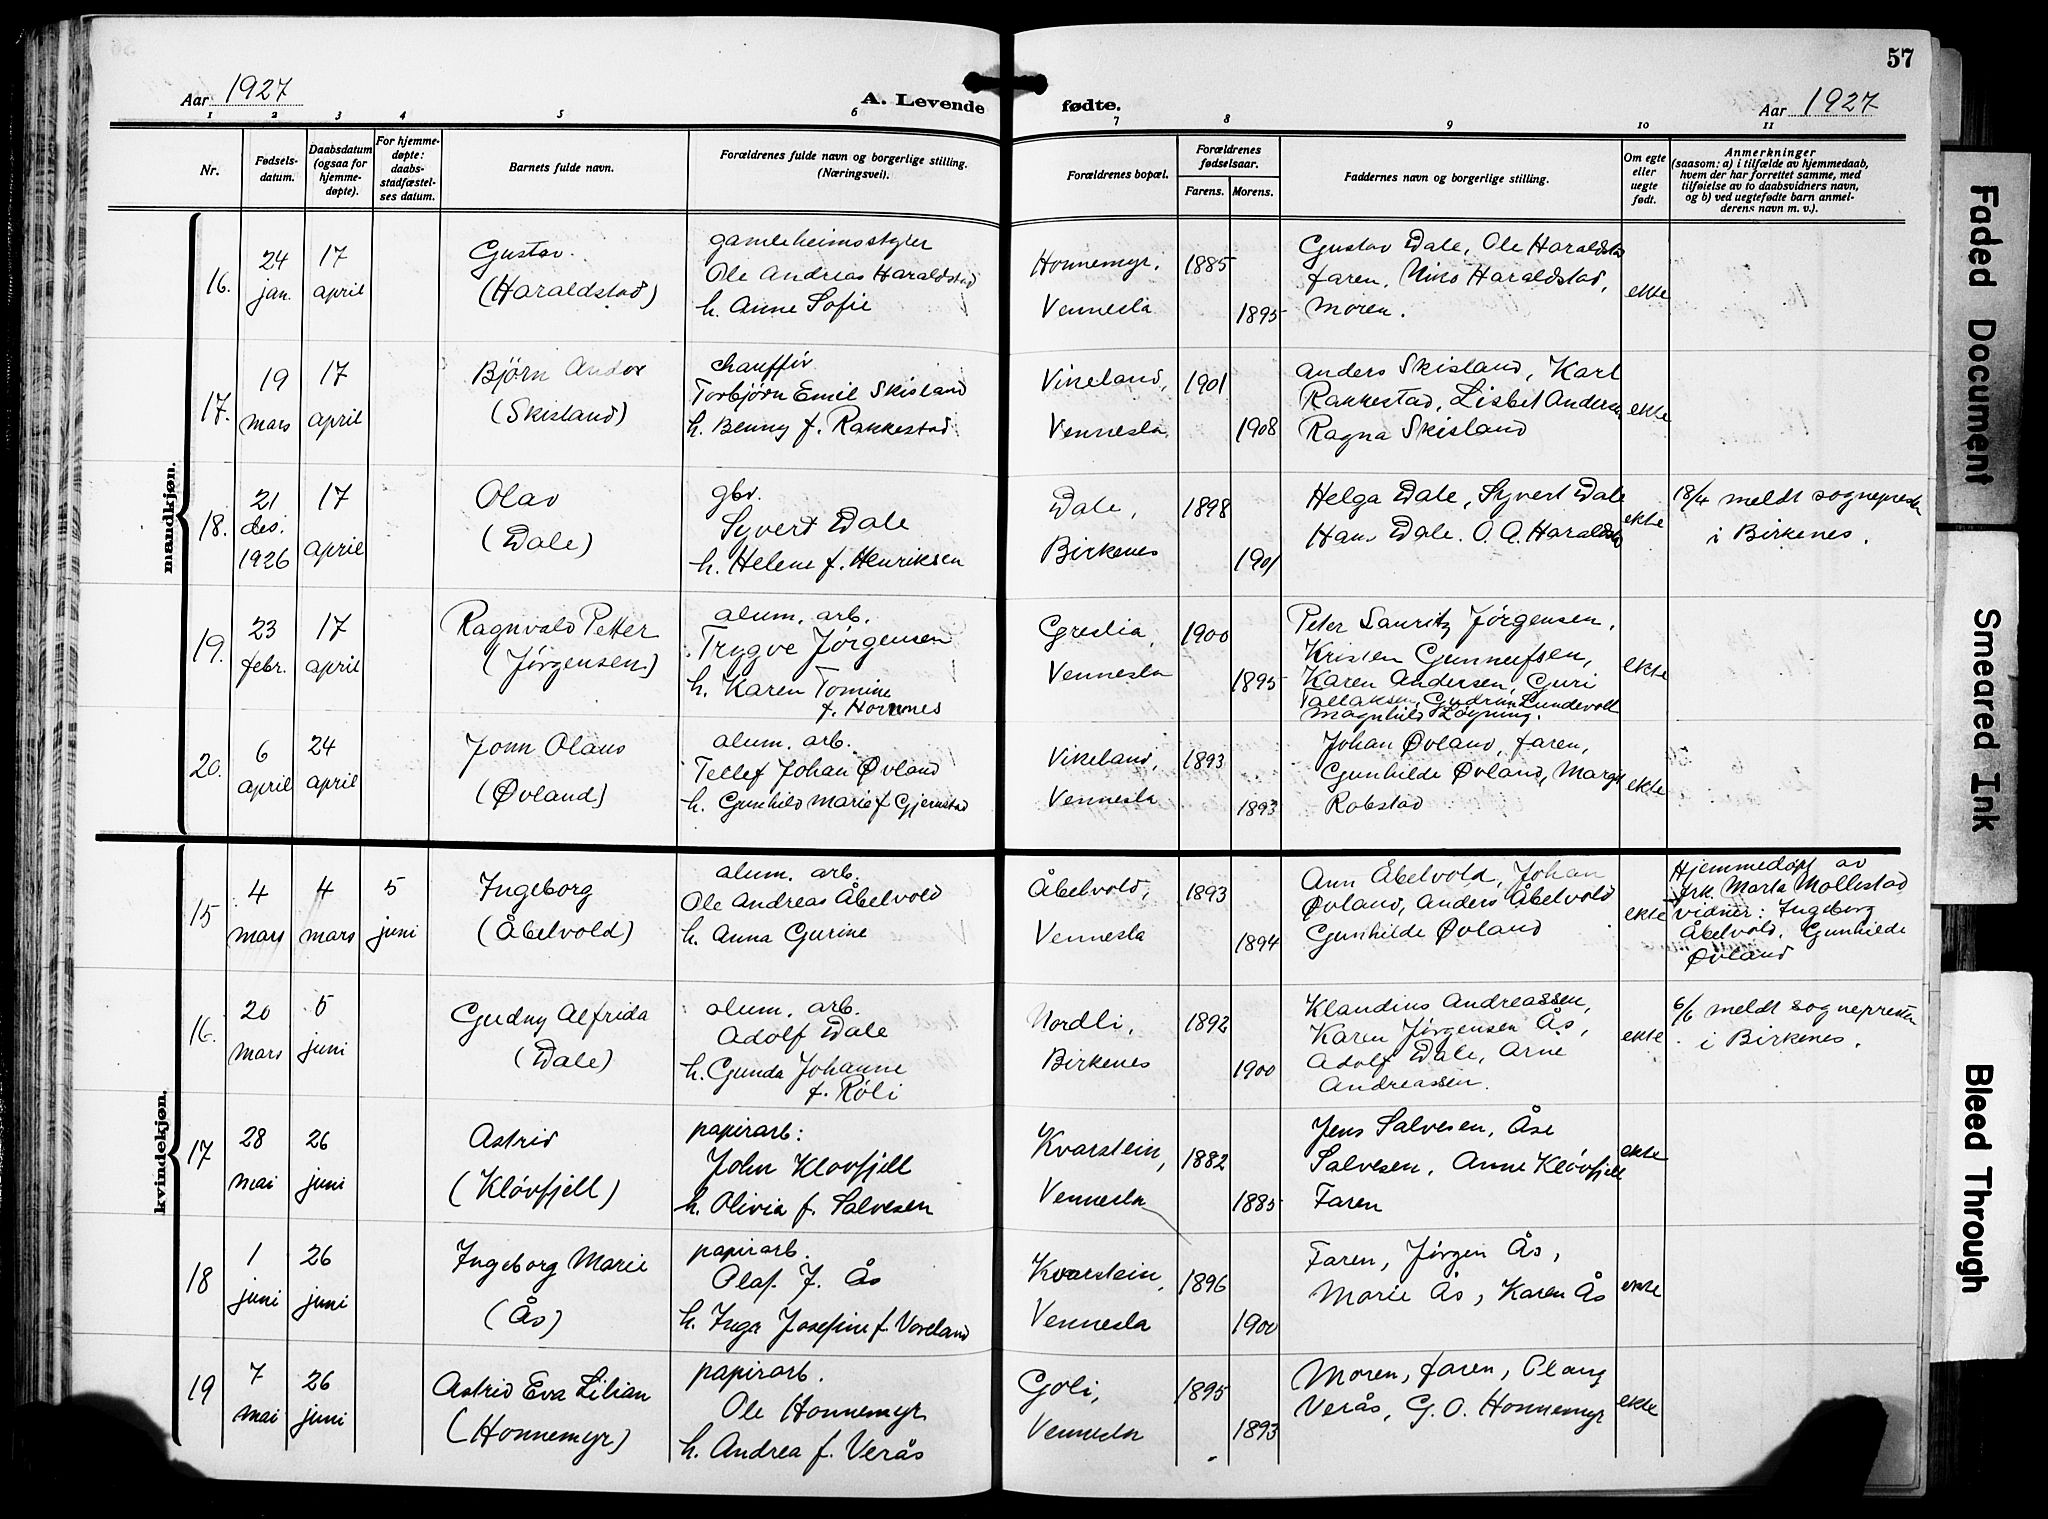 57
Aar 1927
A. Levende fødte.
Aar 1927
1 2 3 4 5 6 7 8 9 10 11
Nr.
Fødsels-
datum.
Daabsdatum
(ogsaa for
hjemme-
døpte).
For hjemme-
døpte:
daabs-
stadfæstel-
ses datum.
Barnets fulde navn.
Forældrenes fulde navn og borgerlige stilling.
(Næringsvei).
Forældrenes bopæl.
Forældrenes
fødselsaar.
Farens. Morens.
Faddernes navn og borgerlige stilling.
Om egte
eller
uegte
født.
Anmerkninger
(saasom: a) i tilfælde av hjemmedaab,
hvem der har forrettet samme, med
tilføielse av to daabsvidners navn,
og b) ved uegtefødte barn anmel-
derens navn m. v.).
mandkjøn.
16.
24
jan.
17
april
Gustav
(Haraldstad)
gamleheimsstyrer
Ole Andreas Haraldstad
h. Anne Sofie
Honnemyr,
Vennesla
1885
1895
Gustav Dale, Ole Haraldstad
faren, Haraldstad,
moren.
ekte
17.
19
mars
17
april
Bjørn Andor
(Skisland)
chauffør
Torbjørn Emil Skisland
h. Benny f. Rakkestad
Vikeland,
Vennesla
1901
1908
Anders Skisland, Karl
Rakkestad, Lisbet Andersen
Ragna Skisland
ekte
18.
21
des.
1926
17
april
Olav
(Dale)
gbr.
Syvert Dale
h. Helene f. Henriksen
Dale,
Birkenes
1898
1901
Helga Dale, Syvert Dale
Hans Dale. O. A. Haraldstad
ekte
18/4 meldt sognepresten
i Birkenes.
19.
23
febr.
17
april
Ragnvald Petter
(Jørgensen)
alum. arb.
Trygve Jørgensen
h. Karen Tomine
f. Hornnes
Greslia,
Vennesla
1900
1895
Peter Lauritz Jørgensen,
Kristen Gunnufsen,
Karen Andersen, Guri
Tallaksen, Gudrun Lundevolt
Magnhild Løyning.
ekte
20.
6
april
24
april
John Olaus
(Øvland)
alum. arb.
Tellef Johan Øvland
h. Gunhild Marie f Gjernstad
Vikeland,
Vennesla
1893
1893
Johan Øvland, faren,
Gunhilde Øvland, Margit
Robstad
ekte
kvindekjøn.
15
4
mars
4
mars
5
juni
Ingeborg
(Åbelvold)
alum. arb.
Ole Andreas Åbelvold
h. Anna Gurine
Åbelvold,
Vennesla
1893
1894
Ann Åbelvold, Johan
Øvland, Anders Åbelvold
Gunhilde Øvland
ekte
Hjemmedøpt av
frk. Marta Mollestad
vidner: Ingeborg
Åbelvold, Gunhilde
Øvland
16.
20
mars
5
juni
Gudny Alfrida
(Dale)
alum. arb.
Adolf Dale
h. Gunda Johanne
f. Røli
Nordli,
Birkenes
1892
1900
Klaudius Andreassen,
Karen Jørgensen Ås,
Adolf Dale, Arne
Andreassen.
ekte
6/6 meldt sognepresten
i Birkenes.
17
28
mai
26
juni
Astrid
(Kløvfjell)
papirarb:
John Kløvfjell
h. Olivia f. Salvesen
Kvarstein,
Vennesla
1882
1885
Jens Salvesen, Åse
Salvesen, Anne Kløvfjell
Faren
ekte
18
1
juni
26
juni
Ingeborg Marie
(Ås)
papirarb.
Olaf J. Ås
h. Inga Josefine f. Voreland
Kvarstein,
Vennesla
1896
1900
Faren, Jørgen Ås,
Marie Ås, Karen Ås
ekte
19
7
mai
26
juni
Astrid Eva Lilian
(Honnemyr)
papirarb.
Ole Honnemyr
h. Andrea f. Verås
Goli,
Vennesla
1895
1893
Moren, faren,
Verås, G. O. Honnemyr
ekte
Faded Document
Smeared Ink
Bleed Through